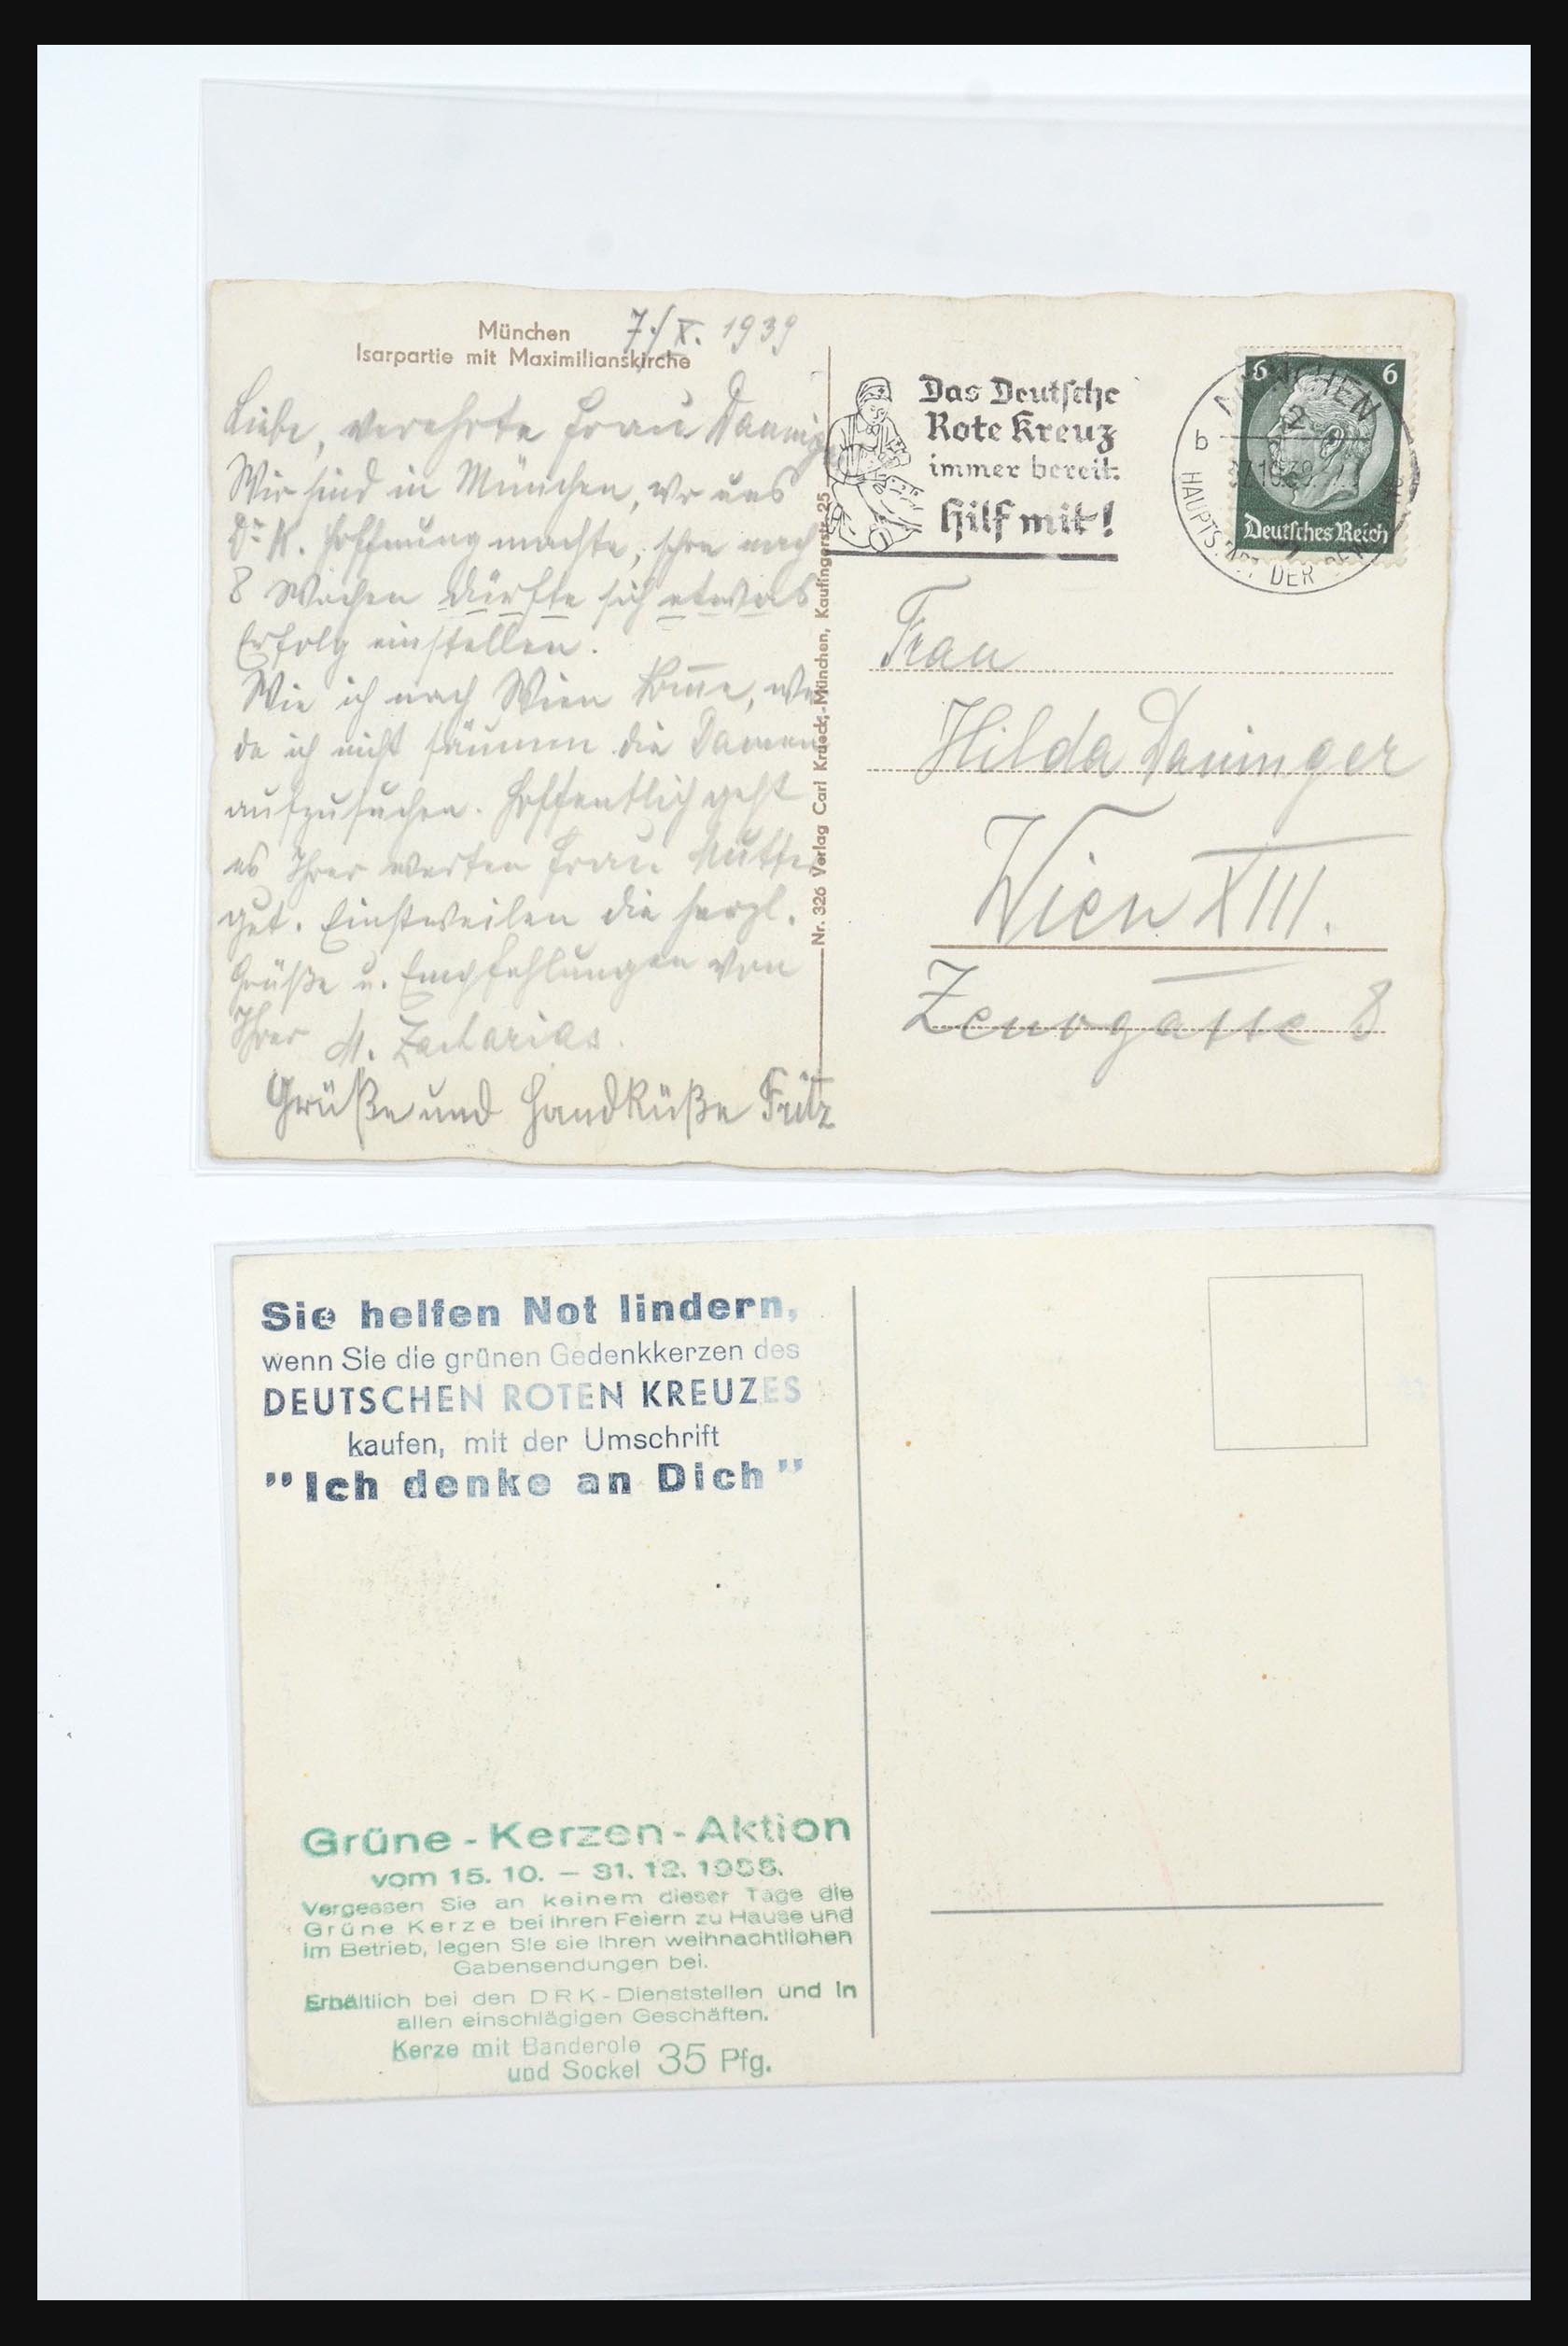 München
7./X. 1939
Isarpartie mit Maximilianskirche
Liebe, verehrte Frau Daninger
Wir sind in München, wo uns
Dr K. Hoffnung machte, schon nach
8 Wochen dürfte sich etwas
Erfolg einstellen.
Wie ich nach Wien kom̅e, wer
de ich nicht säumen die Damen
aufzusuchen. Hoffentlich geht
es Ihrer werten Frau Mutter
gut. Einstweilen die herzl.
Grüße u. Empfehlungen von
Ihrer M. Zacharias.
Grüße und Handküße Fritz
Nr. 326 Verlag Carl Krueck, München, Kaufingerstr. 25
Das Deutsche
Rote Kreuz
immer bereit:
Hilf mit!
MÜNCHEN
2
b
HAUPTST. DER
6 6
Deutsches Reich
Frau
Hilda Daninger
Wien XIII.
Zenogasse 8
Sie helfen Not lindern,
wenn Sie die grünen Gedenkkerzen des
DEUTSCHEN ROTEN KREUZES
kaufen, mit der Umschrift
"Ich denke an Dich"
Grüne-Kerzen-Aktion
vom 15. 10. – 31. 12. 1955.
Vergessen Sie an keinem dieser Tage die
Grüne Kerze bei Ihren Feiern zu Hause und
im Betrieb, legen Sie sie Ihren weihnachtlichen
Gabensendungen bei.
Erhältlich bei den DRK-Dienststellen und in
allen einschlägigen Geschäften.
Kerze mit Banderole
und Sockel 35 Pfg.